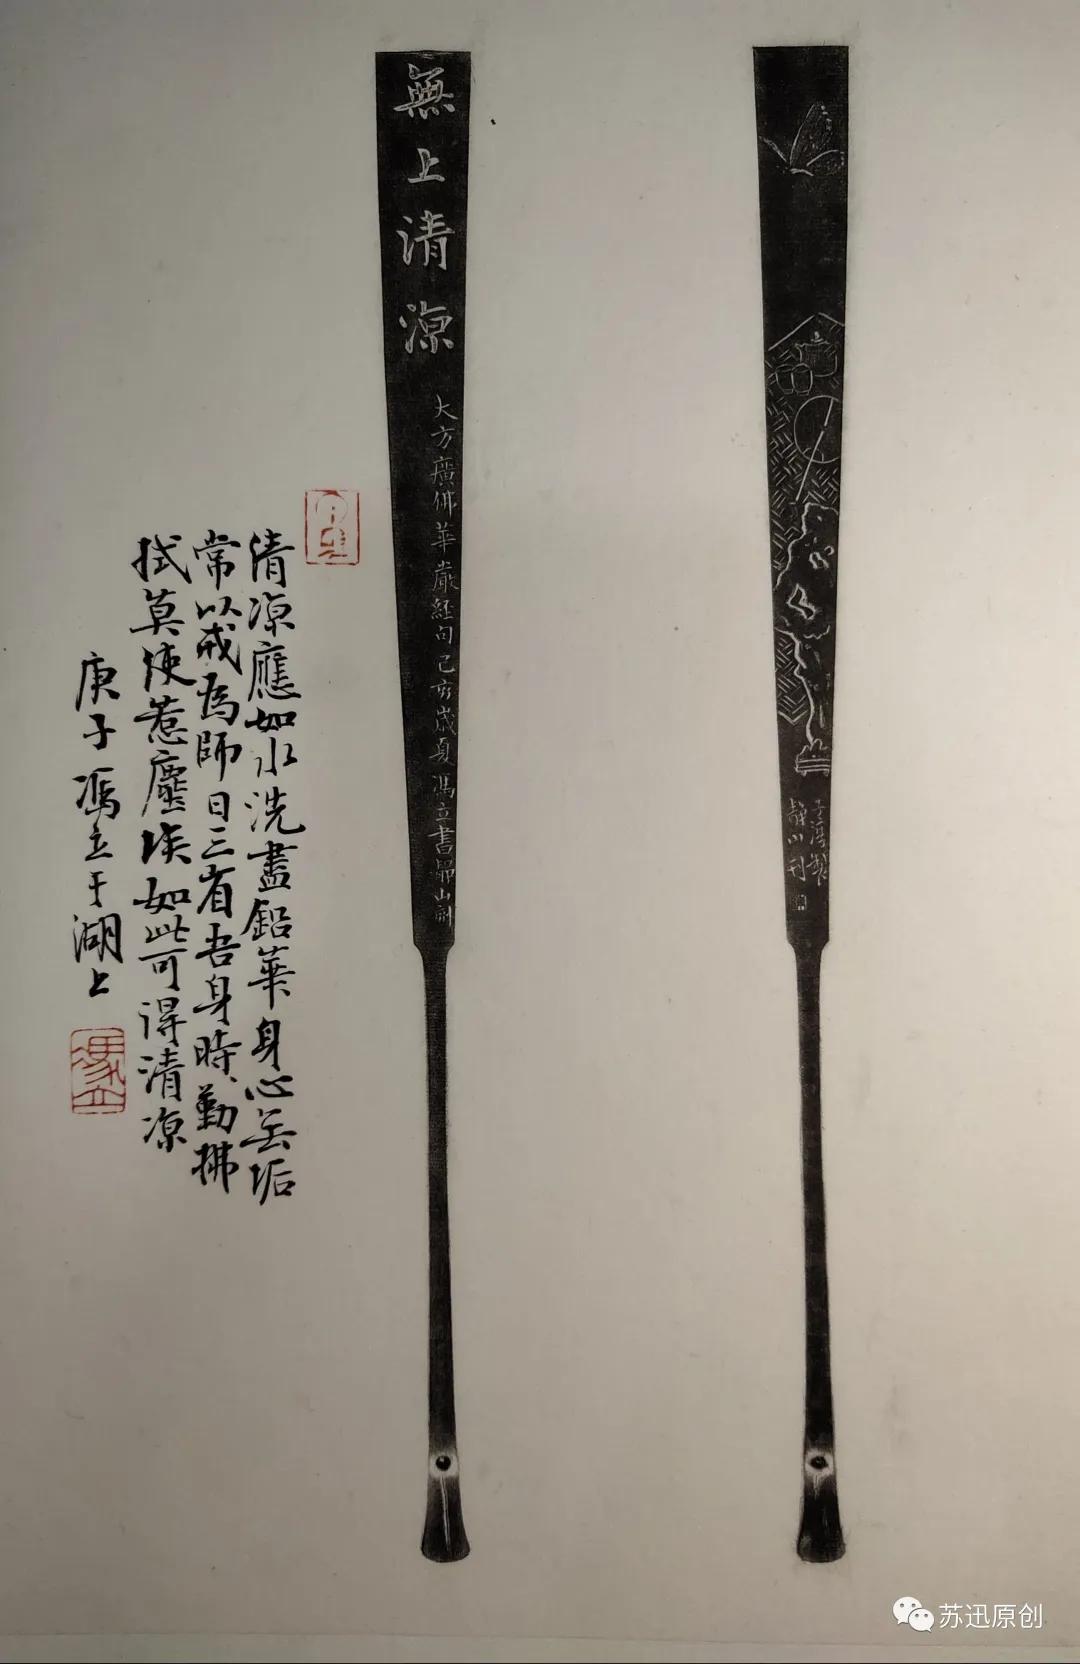 無上清涼
大方廣佛華嚴經句己亥歲夏馮立書
清涼應如水洗盡鉛華身心無垢
常以戒為師日三省吾身時時勤拂
拭莫使惹塵埃如此可得清涼
庚子馮立于湖上
馮立
靜山刊
苏迅原创